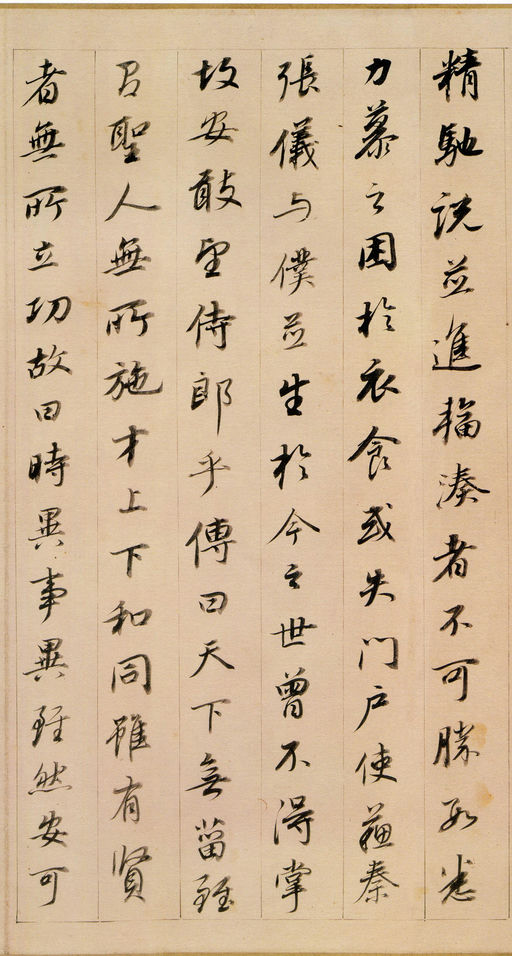 精馳說並進輻湊者不可勝數悉
力慕之困於衣食或失門戶使蘇秦
張儀与僕並生於今之世曾不得掌
故安敢望侍郎乎傳曰天下無菑雖
有聖人無所施才上下和同雖有賢
者無所立功故曰時異事異雖然安可